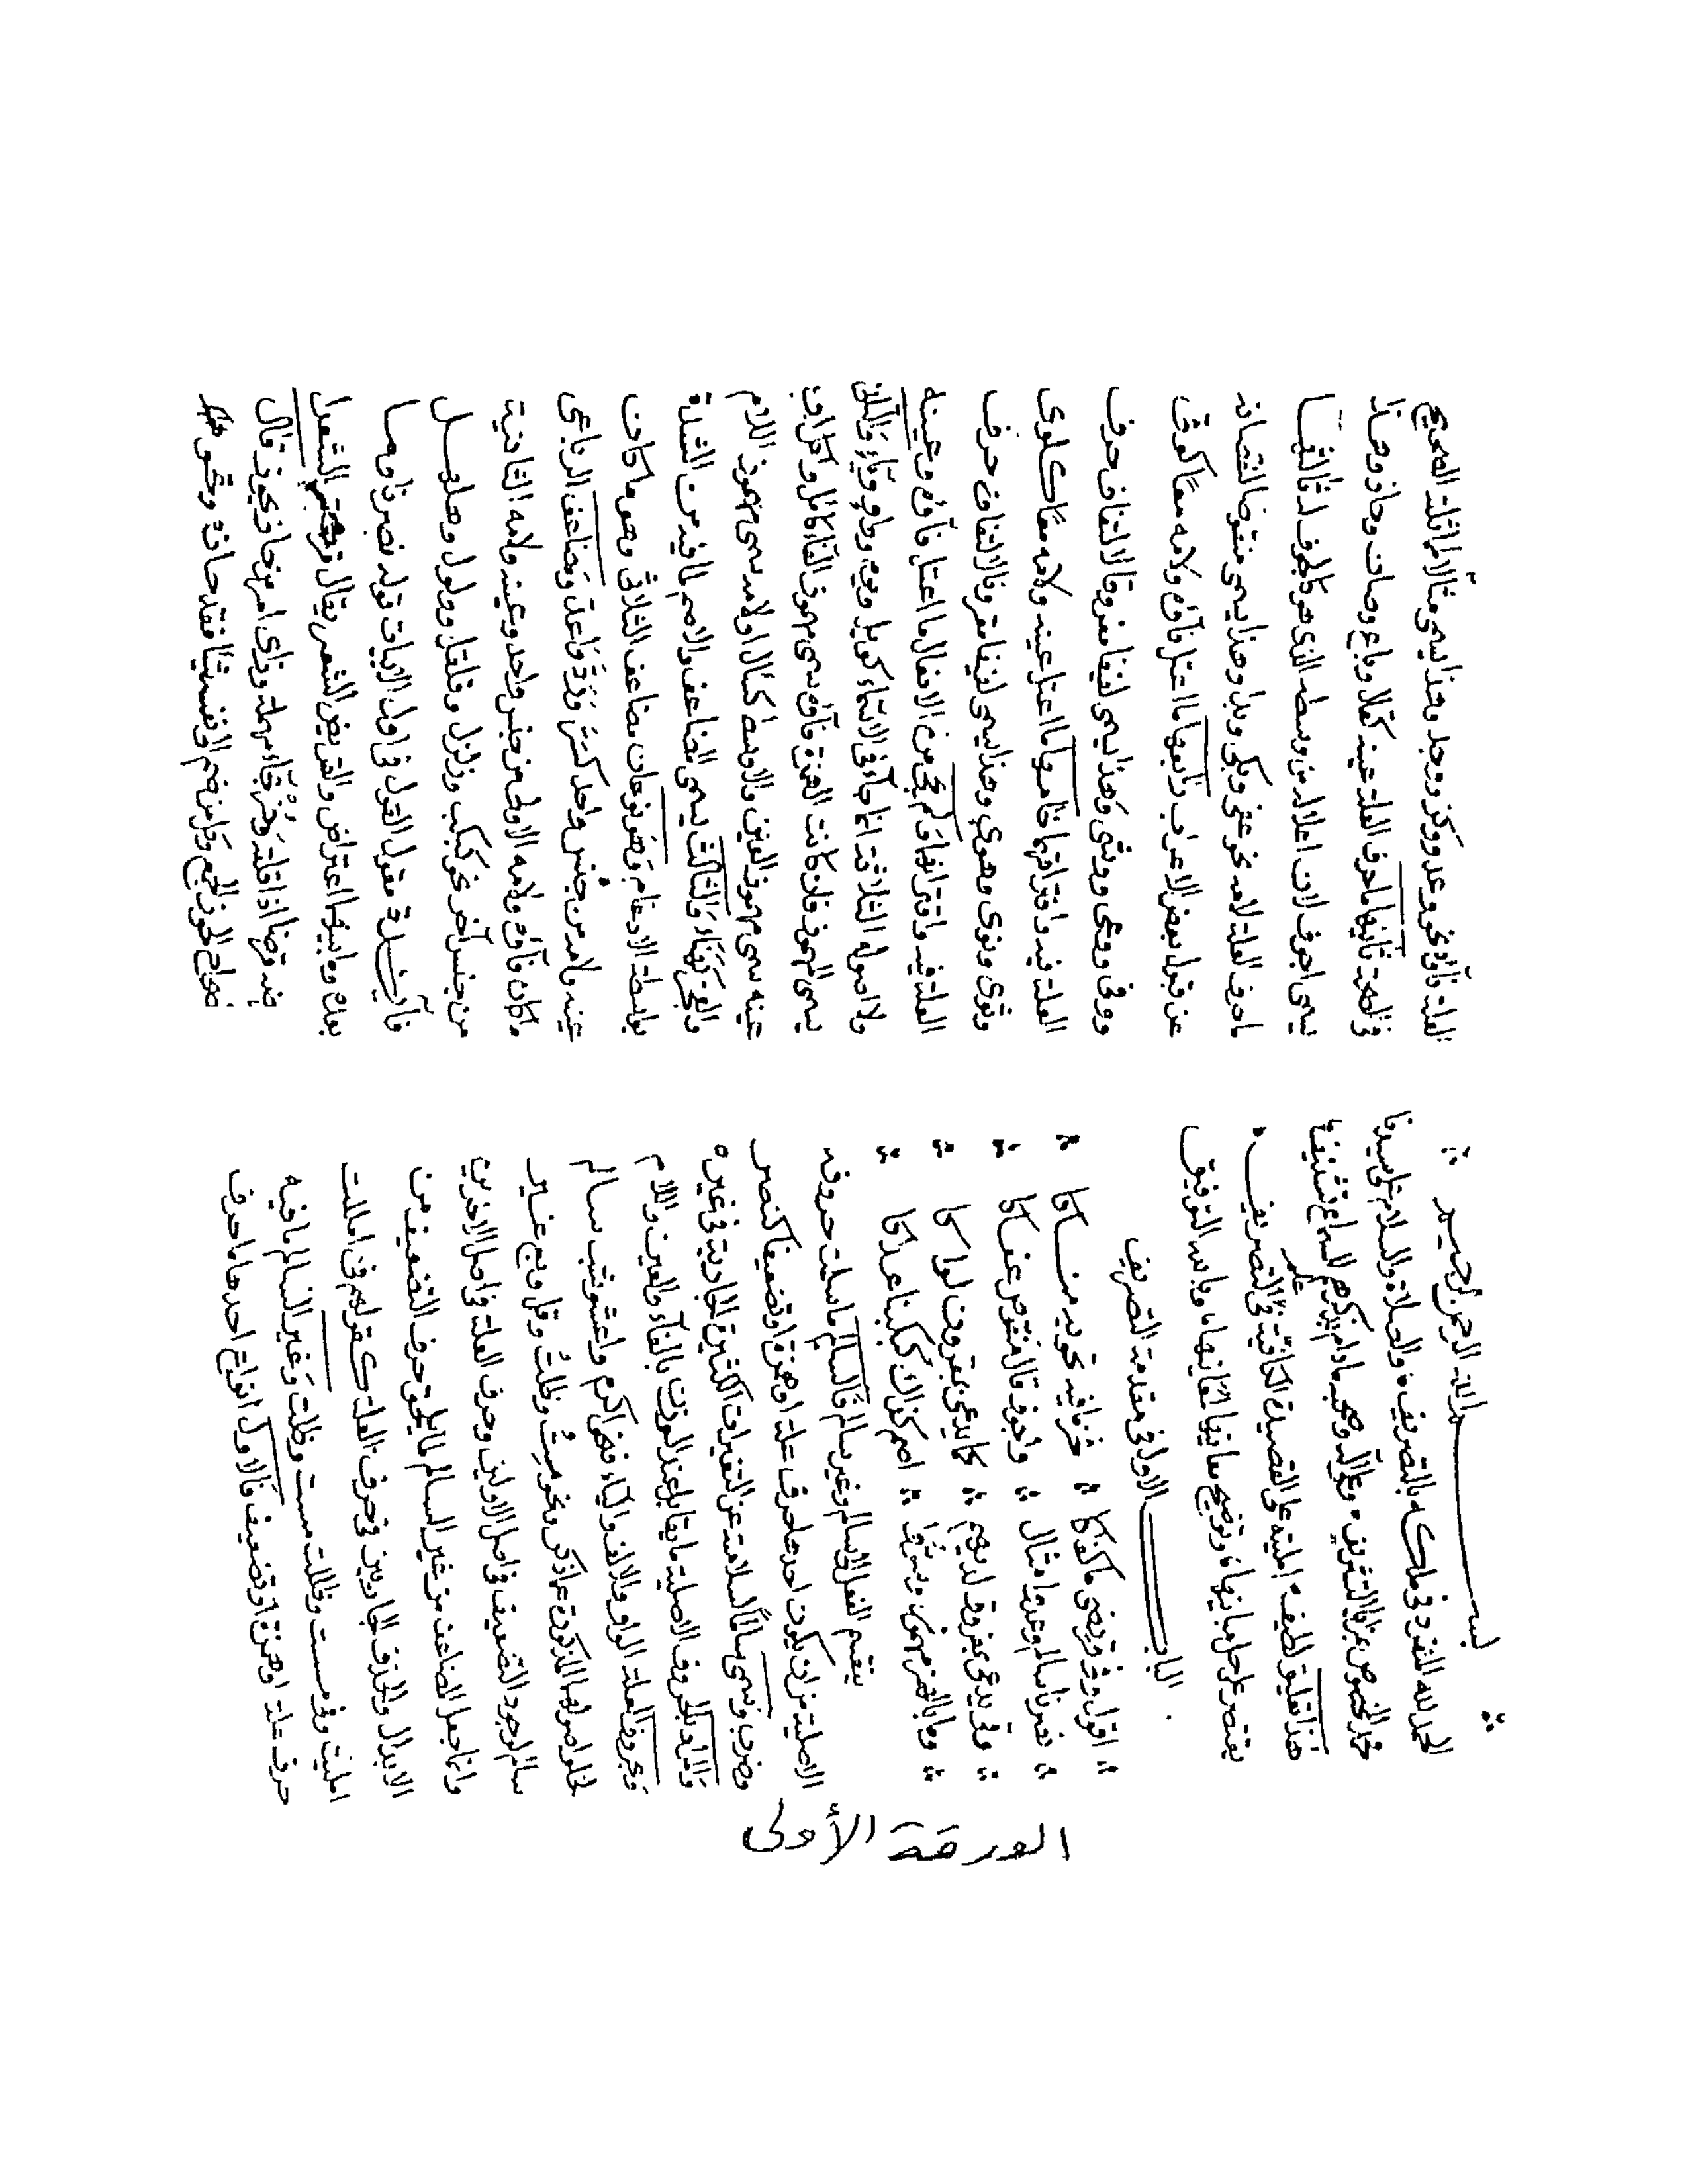 بسم الله الرحمن الرحيم
الحمد لله المتفرد في ملكه بالتصريف والصلاة والسلام على سيدنا
محمد المخصوص بمزايا التشريف وعلى آله وصحبه ما دام
هذا تعليق لطيف املية على القصيدة الكافية في التصريف
يقتصر على حل مبانيها وتوضيح معانيها لمعانيها وبالله التوفيق
الباب الاول في مقدمة التصريف
اقول وقريضى ما كفاكا خذ ما فيه تحويه مناكا
نصرنا سالم وعدنا مثال واجوف قال منقوص عفاكا
وقى يدعى بمفروق لديهم كما يدعى بمقرون لواكا
وما بالهمز مهموز وسموا اصم كذاك ككبكبنا عداكا
ينقسم الفعل الى سالم وغير سالم فالسالم ما سلمت حروفه
الاصلية من ان يكون احدها حرف علة او همزة او تضعيفا كنصر
وضرب وسمى سالما لسلامته عن التغييرات الكثيرة الجارية في غيره
والمراد بالحروف الاصلية ما يقابل عند الوزن بالفاء والعين واللام
وبحروف العلة الواو والالف والياء فنحو اكرم واعشوشب سالم
لخلو اصولها المذكورة عما ذكر ونحو مست وظلت وقل وبع غير
سالم لوجود التضعيف في اصل الاولين وحرف العلة في اصل الاخرين
وانما جعل المضاعف من غير السالم لما يلحق حرف التضعيف من
الابدال والحذف الجاريين في حرف العلة كقولهم في امللت
امليت وفي مسست وظللت مست وظلت وغير السالم ما فيه
حرف علة او همزة او تضعيف فالاول انواع احدها ما حرف
العلة فاؤه نحو وعد ووكز ووجد وهذا يسمى مثالا لمماثلته الصحيح
في الصحة ثانيها ما حرف العلة عينه كقال وباع وصان وحاز وهذا
يسمى اجوف لان اعلاله من وسطه الذى هو كالجوف له ثالثها
ما حرف العلة لامه نحو عفى وبكى وبلى وهذا يسمى منقوصا لنقصانه
عن قبول بعض الاعراب رابعها ما اعتل فاؤه ولامه معا كوقى
ووفى ووعى ووشى وهذا يسمى لفيفا مفروقا لالتفاف حرف
العلة فيه وافتراقهما خامسها ما اعتل عينه ولامه معا كلوى
وثوى ونوى وهوى وهذا يسمى لفيفا مقرونا لالتفاف حرف
العلة فيه واقترانهما ولم يجئ من الافعال ما اعتل فاؤه وعينه
ولا اصوله الثلاثة انما جاء في الاسماء كويل ويوم وواو وياء والثاني
يسمى المهموز فان كانت الهمزة فاؤه سمى مهموز الفاء كاكل وامر او
عينه سمى مهموز العين والاوسط كسأل او لامه سمى مهموز اللام
والعجز كهناء والثالث يسمى المضاعف والاصم لما فيه من الشدة
بواسطة الادغام وهو نوعان مضاعف الثلاثى وهو ما كان
عينه ولامه من جنس واحد كمس ورد واعد ومضاعف الرباعى
ما كان فاؤه ولامه الاولى من جنس واحد وعينه ولامه الثانية
من جنس آخر نحو كبكب وزلزل وقلقل وولول وهلهل
فائدة مقول القول في اول الابيات قوله نصرنا وما
بعده وما بينهما اعتراض والقريض الشعر يقال قرضت الشعر